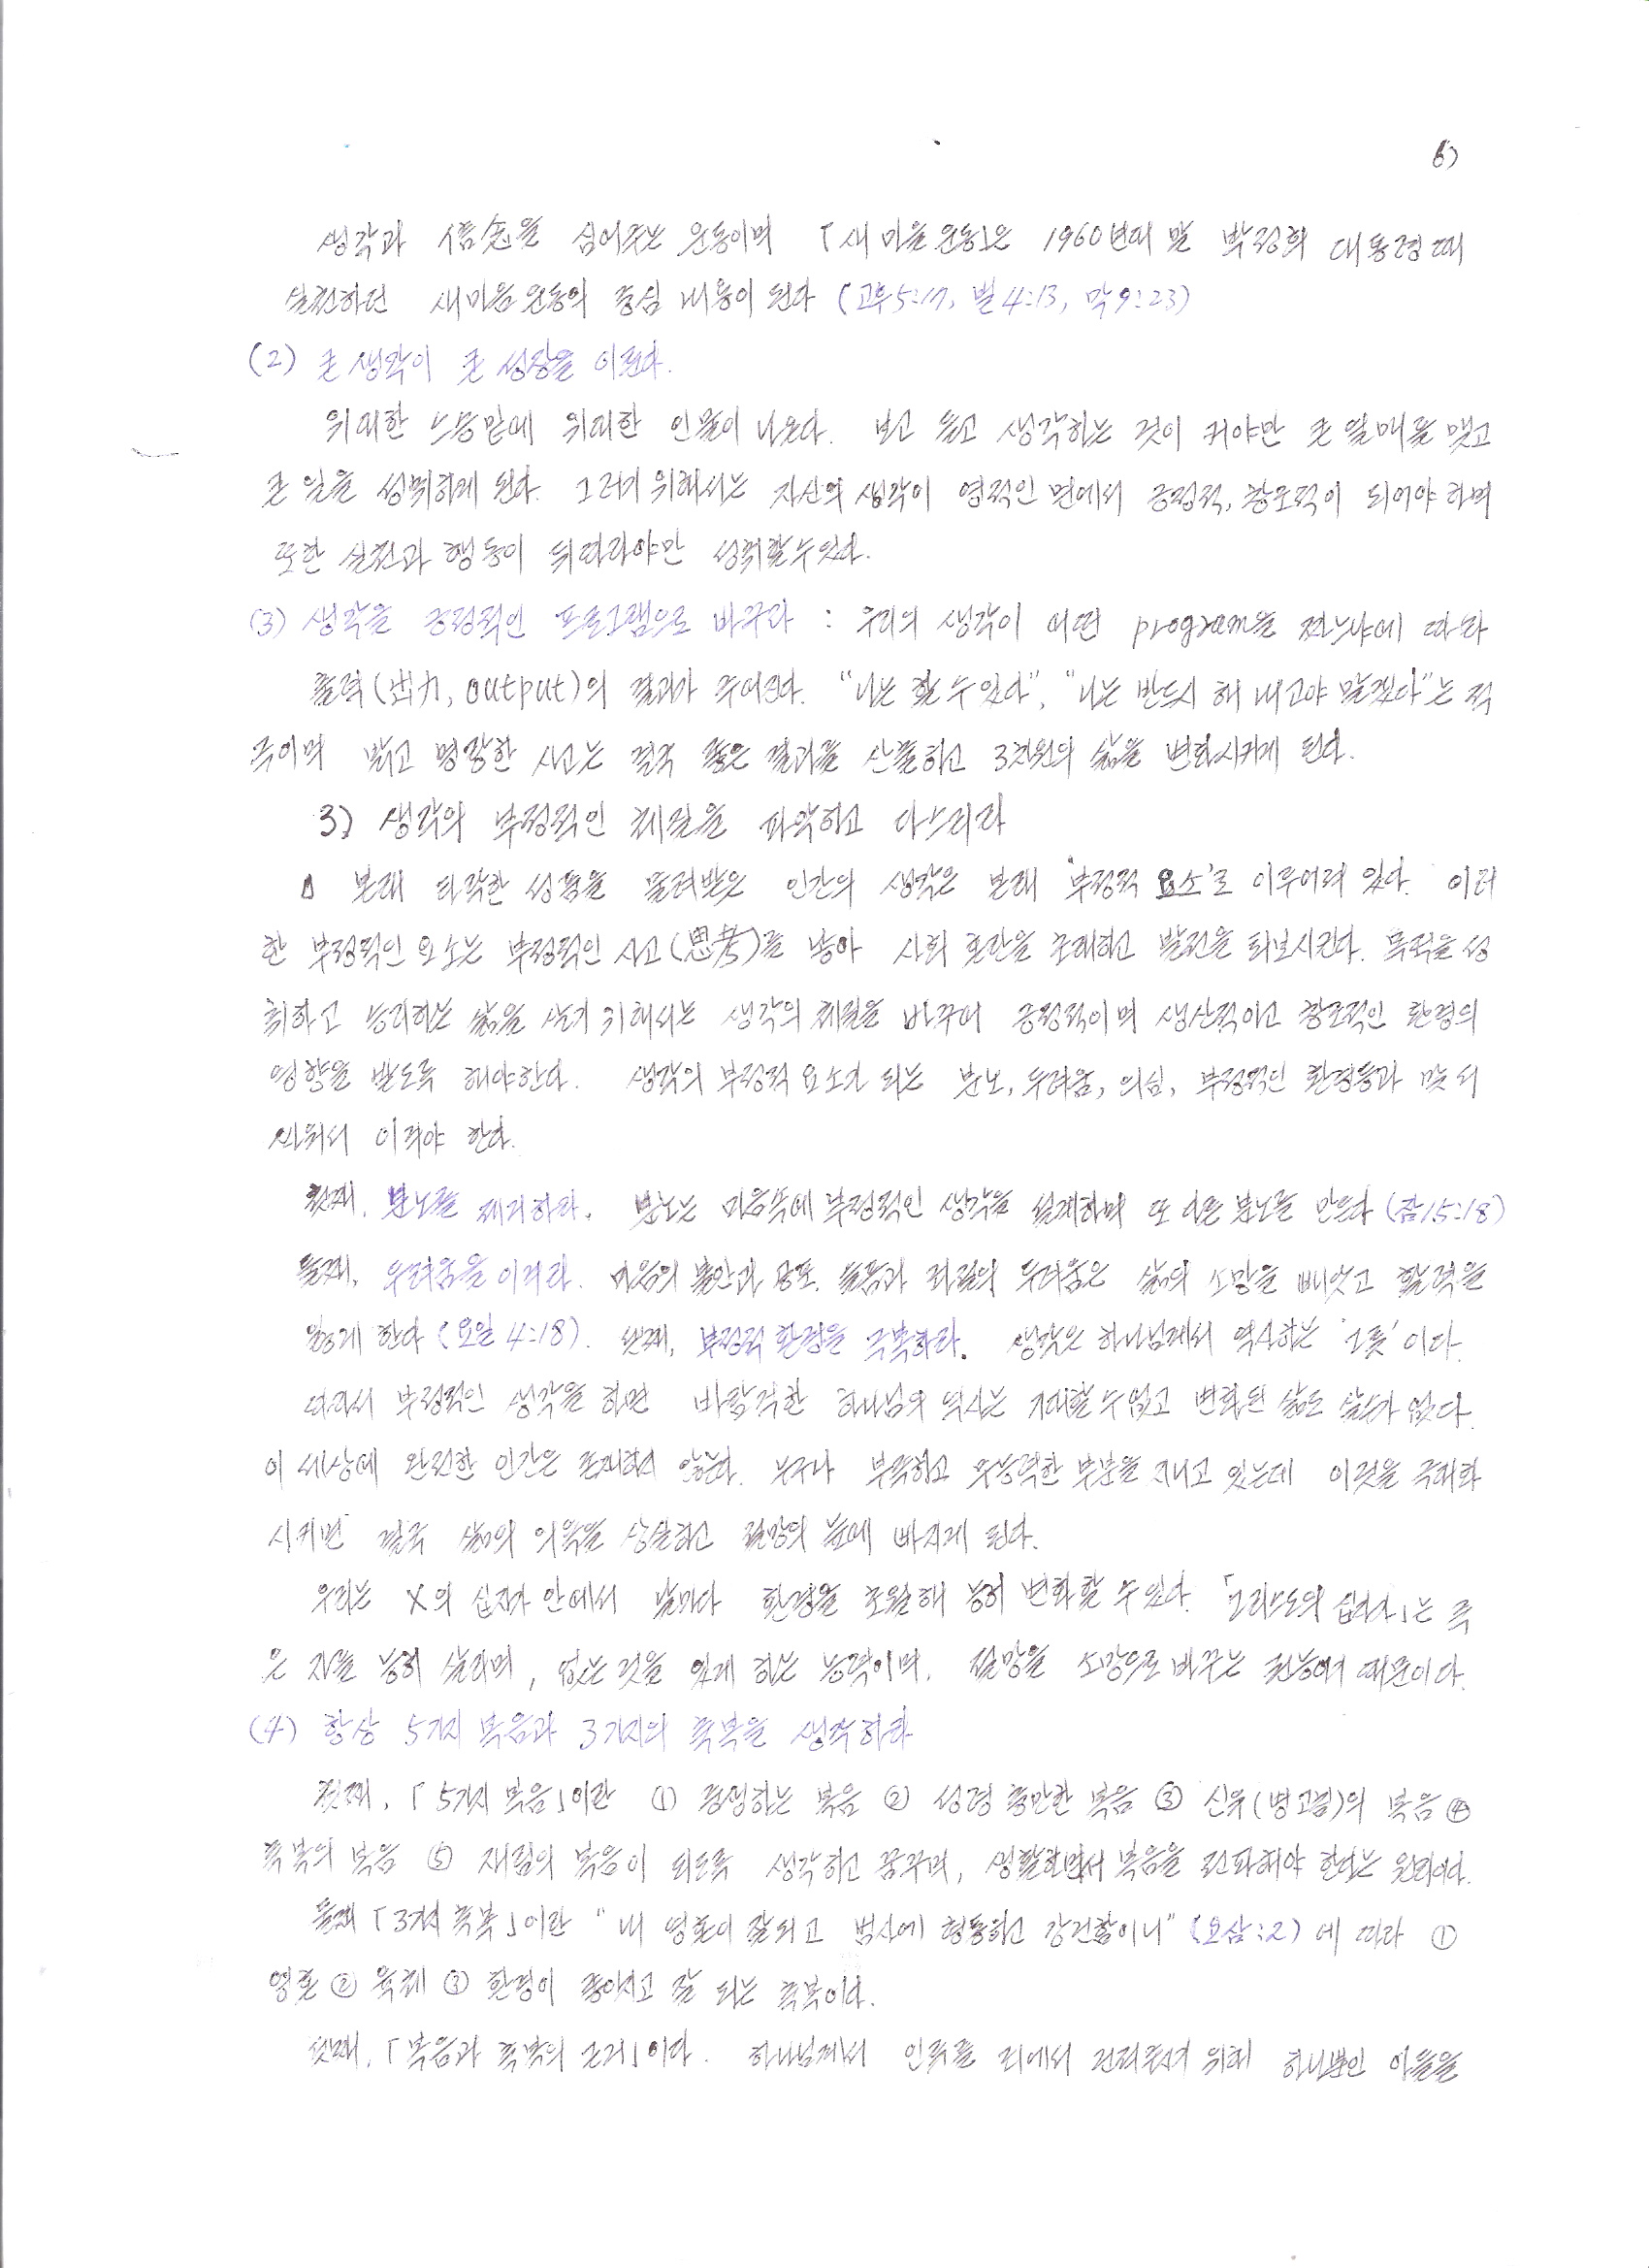 6)
생각과 信念을 심어주는 운동이며 「새마을운동」은 1960년대 말 박정희 대통령 때
실천하던 새마음운동의 중심 내용이 된다 (고후5:17, 빌4:13, 막9:23)
(2) 큰 생각이 큰 성장을 이룬다.
위대한 스승밑에 위대한 인물이 나온다. 보고 듣고 생각하는 것이 커야만 큰 열매를 맺고
큰 일을 성취하게 된다. 그러기 위해서는 자신의 생각이 영적인 면에서 긍정적, 창조적이 되어야 하며
또한 실천과 행동이 뒤따라야만 성취할 수 있다.
(3) 생각을 긍정적인 프로그램으로 바꾸라 : 우리의 생각이 어떤 program을 짜느냐에 따라
출력(出力, output)의 결과가 주어진다. “나는 할 수 있다”, “나는 반드시 해 내고야 말겠다”는 적
극이며 밝고 명랑한 사고는 결국 좋은 결과를 산출하고 3차원의 삶을 변화시키게 된다.
3) 생각의 부정적인 체질을 파악하고 다스리라
본래 타락한 성품을 물려받은 인간의 생각은 본래 '부정적 요소'로 이루어져 있다. 이러
한 부정적인 요소는 부정적인 사고(思考)를 낳아 사회 혼란을 초래하고 발전을 퇴보시킨다. 목적을 성
취하고 승리하는 삶을 살기 위해서는 생각의 체질을 바꾸어 긍정적이며 생산적이고 창조적인 환경의
영향을 받도록 해야한다. 생각의 부정적 요소가 되는 분노, 두려움, 의심, 부정적인 환경등과 맞서
싸워서 이겨야 한다.
첫째, 분노를 제거하라. 분노는 마음속에 부정적인 생각을 설계하며 또 다른 분노를 만든다 (잠15:18)
둘째, 두려움을 이기라. 마음의 불안과 공포, 슬픔과 좌절의 두려움은 삶의 소망을 빼앗고 활력을
잃게 한다 (요일 4:18). 셋째, 부정적 환경을 극복하라. 생각은 하나님께서 역사하는 '그릇'이다.
따라서 부정적인 생각을 하면 바람직한 하나님의 역사는 기대할 수 없고 변화된 삶도 살 수가 없다.
이 세상에 완전한 인간은 존재하지 않는다. 누구나 부족하고 무능력한 부분을 지니고 있는데 이것을 극대화
시키면 결국 삶의 의욕을 상실하고 절망의 늪에 빠지게 된다.
우리는 X의 십자가 안에서 날마다 환경을 초월해 능히 변화할 수 있다. 「그리스도의 십자가」는 죽
은 자를 능히 살리며, 없는 것을 있게 하는 능력이며, 절망을 소망으로 바꾸는 권능이기 때문이다.
(4) 항상 5가지 복음과 3가지의 축복을 생각하라
첫째, 「5가지 복음」이란 ① 중생하는 복음 ② 성령 충만한 복음 ③ 신유(병고침)의 복음 ④
축복의 복음 ⑤ 재림의 복음이 되도록 생각하고 꿈꾸며, 생활하면서 복음을 전파해야 한다는 원리이다.
둘째 「3가지 축복」이란 “네 영혼이 잘되고 범사에 형통하고 강건함이니” (요삼:2) 에 따라 ①
영혼 ② 육체 ③ 환경이 좋아지고 잘 되는 축복이다.
셋째, 「복음과 축복의 근거」이다. 하나님께서 인류를 죄에서 건져주시기 위해 하나뿐인 아들을